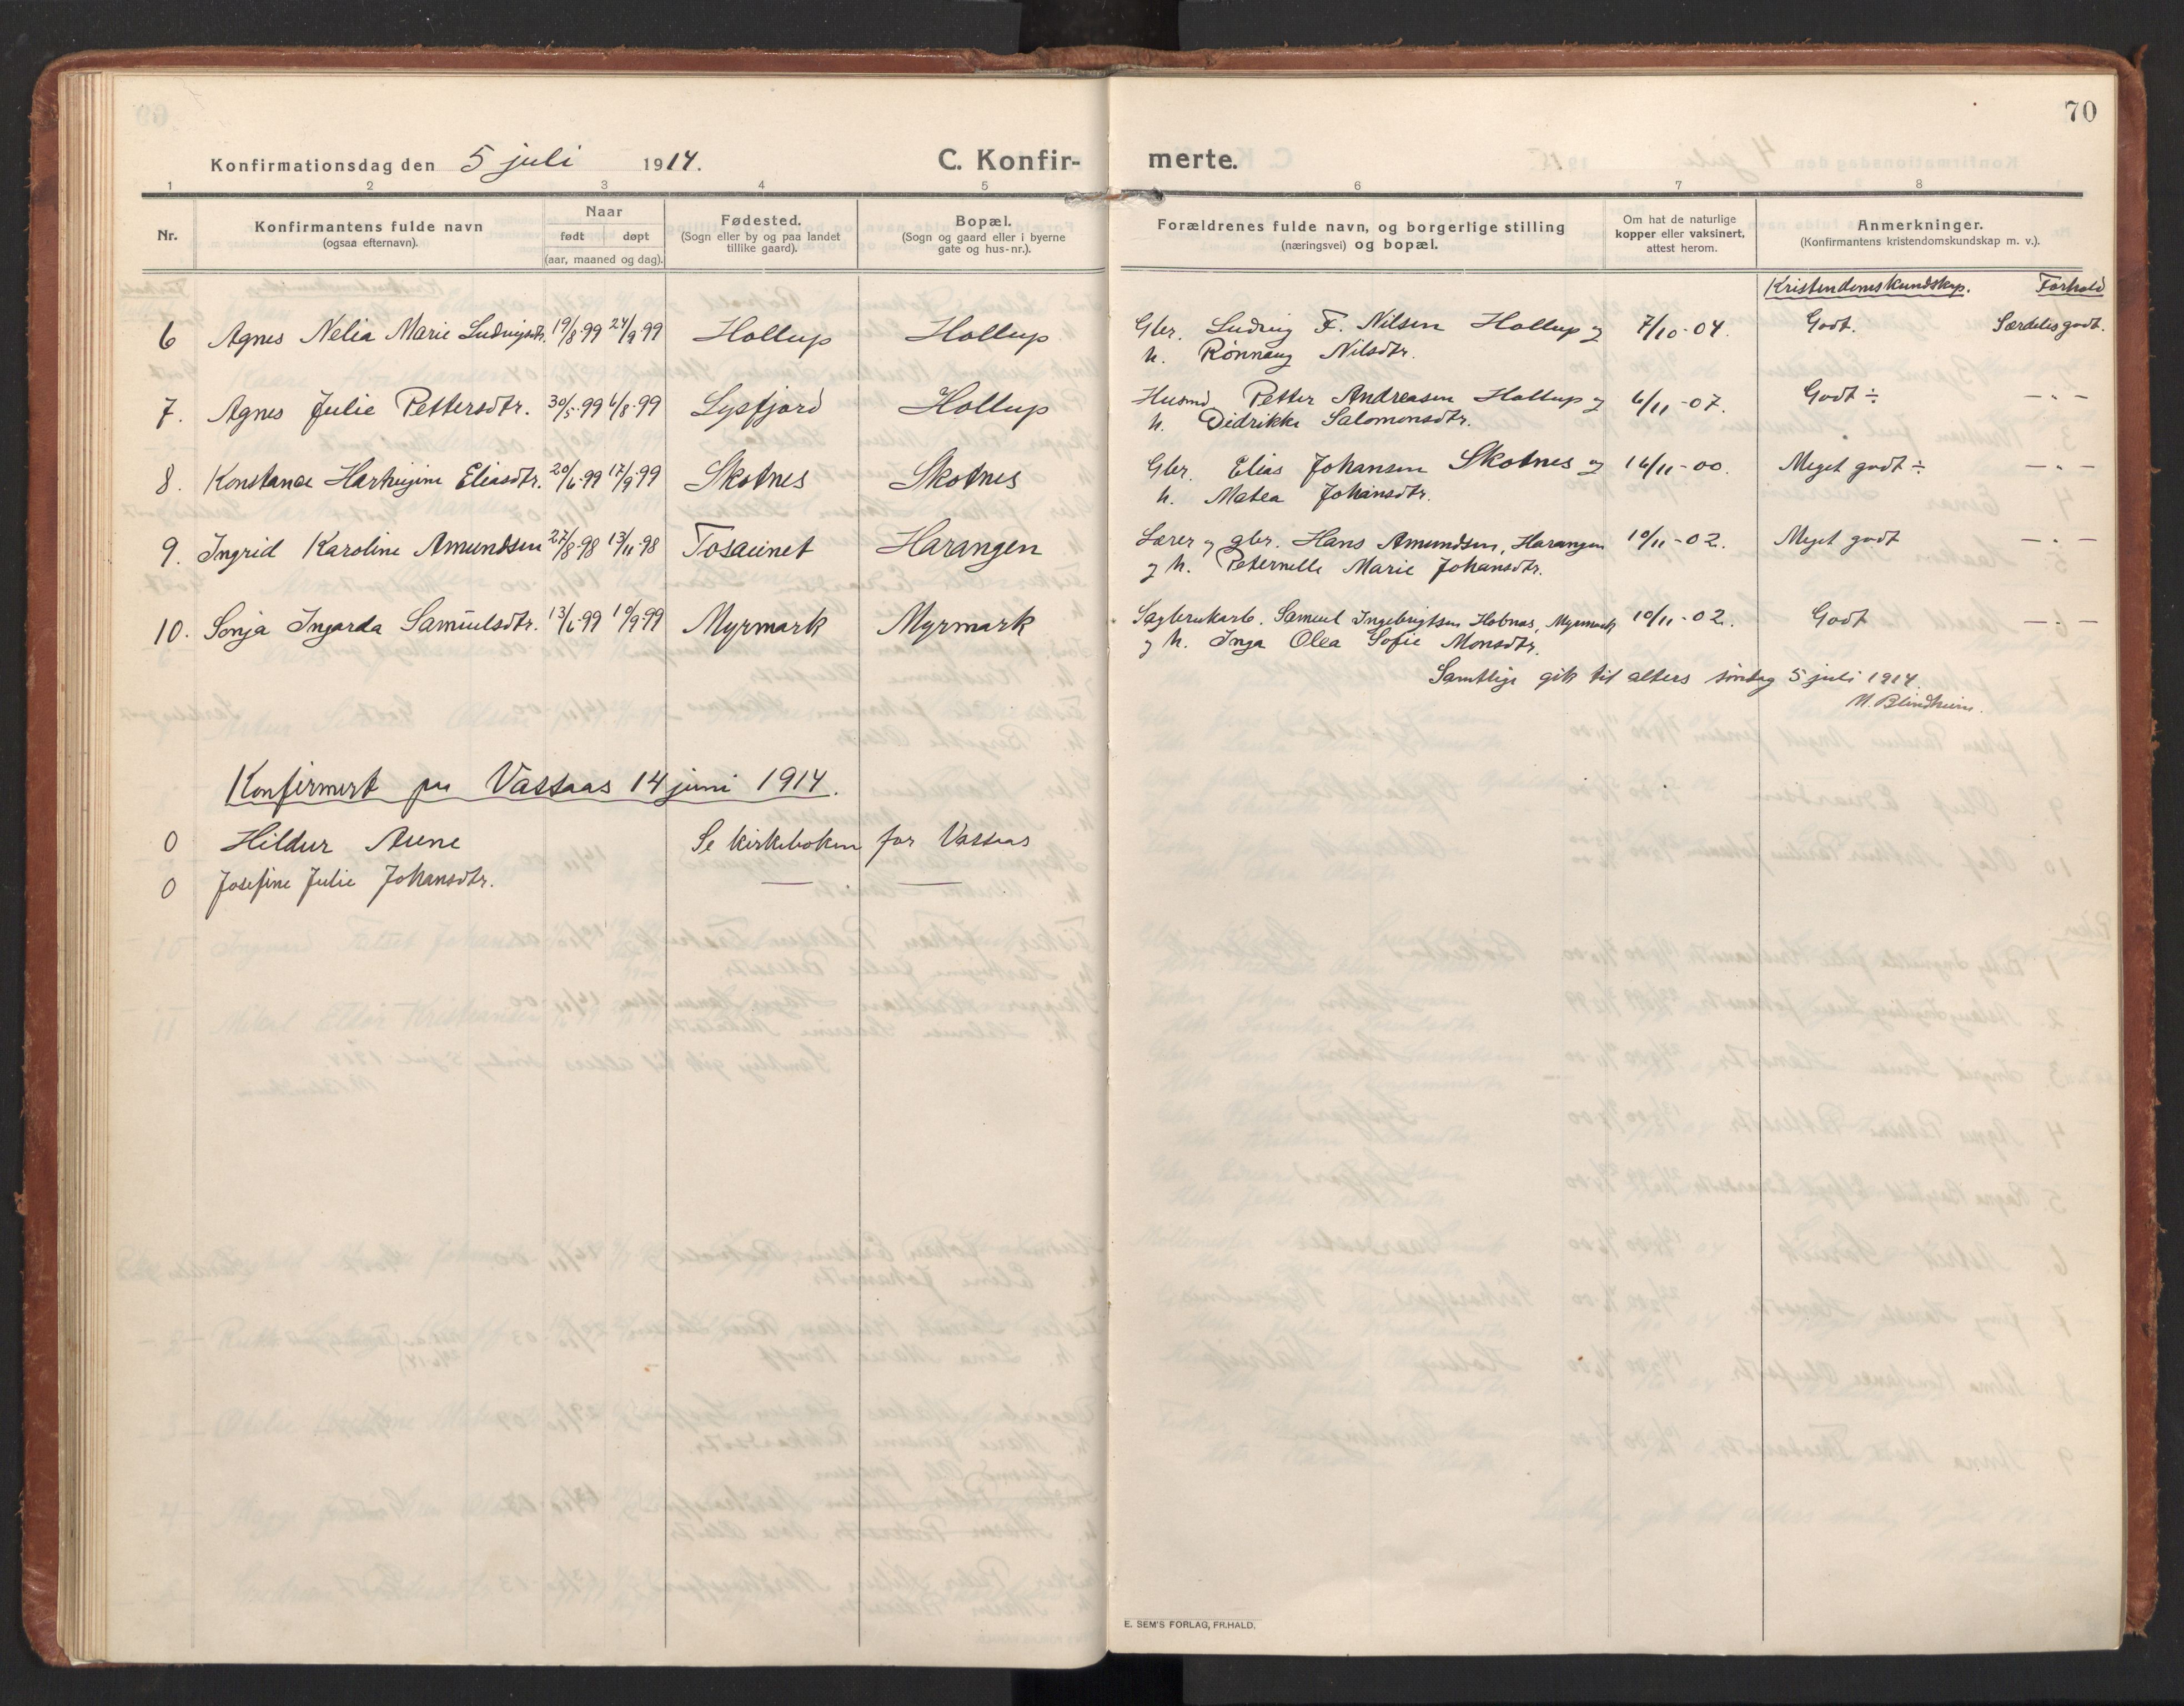 70
Konfirmationsdag den 5 juli 1914. C. Konfir- merte.
1 2 3 4 5 6 7 8
Nr.
Konfirmantens fulde navn
(ogsaa efternavn).
Naar
født døpt
(aar, maaned og dag).
Fødested.
(Sogn eller by og paa landet
tillike gaard).
Bopæl.
(Sogn og gaard eller i byerne
gate og hus-nr.).
Forældrenes fulde navn, og borgerlige stilling
(næringsvei) og bopæl.
Om hat de naturlige
kopper eller vaksinert,
attest herom.
Anmerkninger.
(Konfirmantens kristendomskundskap m. v.).
Kristendomskundskap. Forhold
6 Agnes Nelia Marie Ludvigsdtr. 19/8-99 24/9 99 Hollup Hollup Gbr. Ludvig F. Nilsen Hollup og 7/10-04. Godt. Særdeles godt.
h. Rønnaug Nilsdtr.
7. Agnes Julie Pettersdtr. 30/5-99 6/8-99 Lysfjord Hollup Husmd Petter Andreasen Hollup og 6/11-07. Godt ÷ — " —
h. Didrikke Salomonsdtr.
8. Konstanse Hartvigine Eliasdtr. 20/6-99 17/9 99 Skotnes Skotnes Gbr. Elias Johansen Skotnes og 16/11-00. Meget godt ÷ — " —
h. Matea Johansdtr.
9. Ingrid Karoline Amundsen 27/8-98 13/11-98 Tosaunet Harangen Lærer og gbr. Hans Amundsen, Harangen 10/11-02. Meget godt — " —
og h. Peternelle Marie Johansdtr.
10. Sonja Ingarda Samuelsdtr. 13/6-99 10/9-99 Myrmark Myrmark Sagbrukarb. Samuel Ingebrigtsen Hobnas, Myrmark 10/11-02. Godt — " —
og h. Inga Olea Sofie Monsdtr.
Samtlige gik til alters søndag 5 juli 1914.
M. Blindheim.
Konfirmert paa Vassaas 14 juni 1914.
0 Hildur Aune Se kirkeboken for Vassaas
0 Josefine Julie Johansdtr. — —
E. SEM'S FORLAG, FR.HALD.